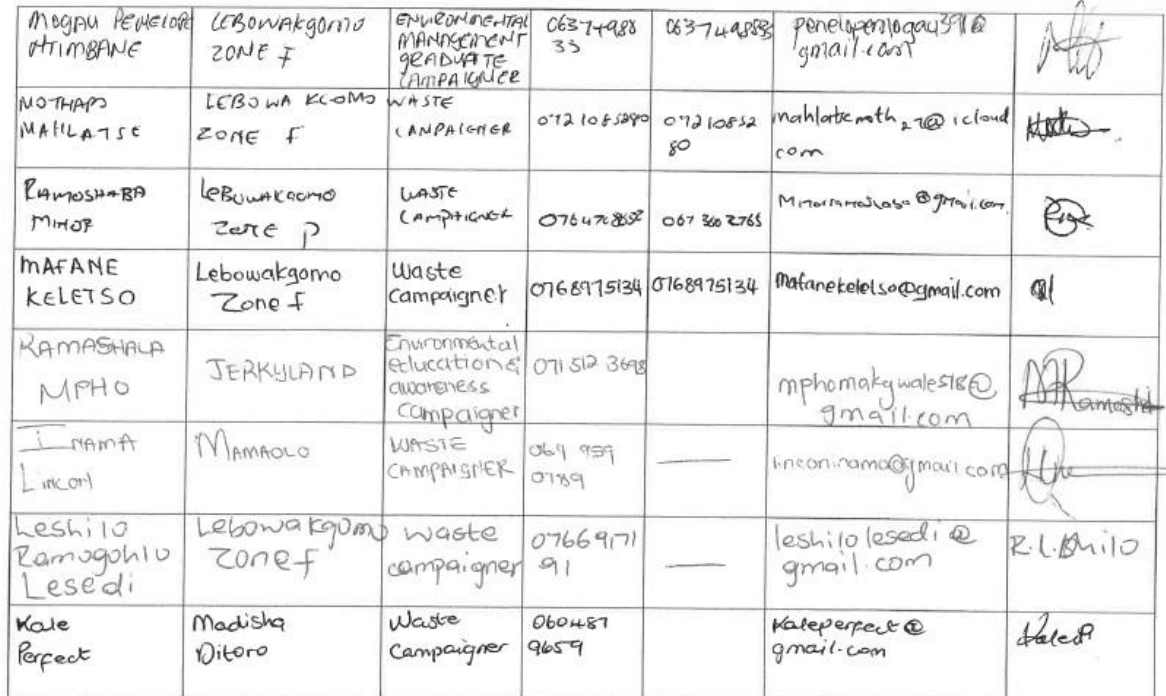 MOGAU PENELOPE
NTIMBANE
LEBOWAKGOMO
ZONE F
ENVIRONMENTAL
MANAGEMENT
GRADUATE
CAMPAIGNER
06374988
33
0637498833
penelopemogau391@
gmail.com
MOTHAPO
MAHLATSE
LEBOWA KGOMO
ZONE F
WASTE
CAMPAIGNER
0721085280
07210852
80
@icloud
com
RAMOSHABA
MINOR
LEBOWAKGOMO
ZONE P
WASTE
CAMPAIGNER
067 360 2765
@gmail.com
MAFANE
KELETSO
Lebowakgomo
Zone F
Waste
Campaigner
0768975134
0768975134
mafanekeletso@gmail.com
RAMASHALA
MPHO
JERKYLAND
Environmental
education &
awareness
Campaigner
071 512 3698
mphomakgwale518@
gmail.com
INAMA
Lincon
MAMAOLO
WASTE
CAMPAIGNER
069 959
0789
linconinama@gmail.com
Leshilo
Ramogohlo
Lesedi
Lebowakgomo
Zone f
waste
campaigner
07669171
91
leshilolesedi@
gmail.com
R.L.Shilo
Kale
Perfect
Madisha
Ditoro
Waste
Campaigner
060487
9659
Kaleperfect@
gmail.com
Kale P